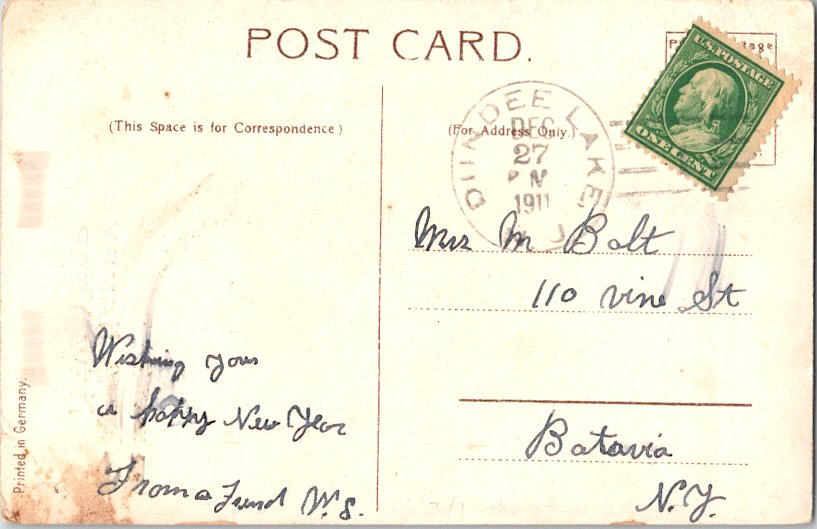 POST CARD.
U.S. POSTAGE
ONE CENT
(This Space is for Correspondence)
(For Address Only.)
DUNDEE LAKE
DEC
27
P M
1911
N J
Mrs M Bolt
110 Vine St
Batavia
N.Y.
Wishing you
a happy New Year
From a Frend W.S.
Printed in Germany.